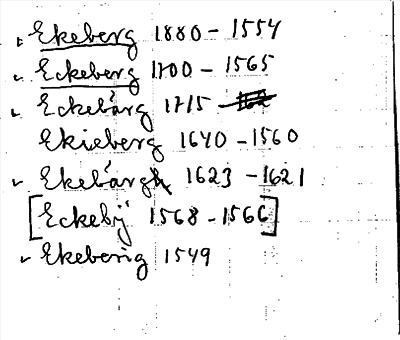 Ekeberg 1880 - 1554
Eckeberg 1700 - 1565
Eckebärg 1715
Ekieberg 1640 - 1560
Ekebärgh 1623 - 1621
[Eckebÿ 1568 - 1566]
Ekebering 1549